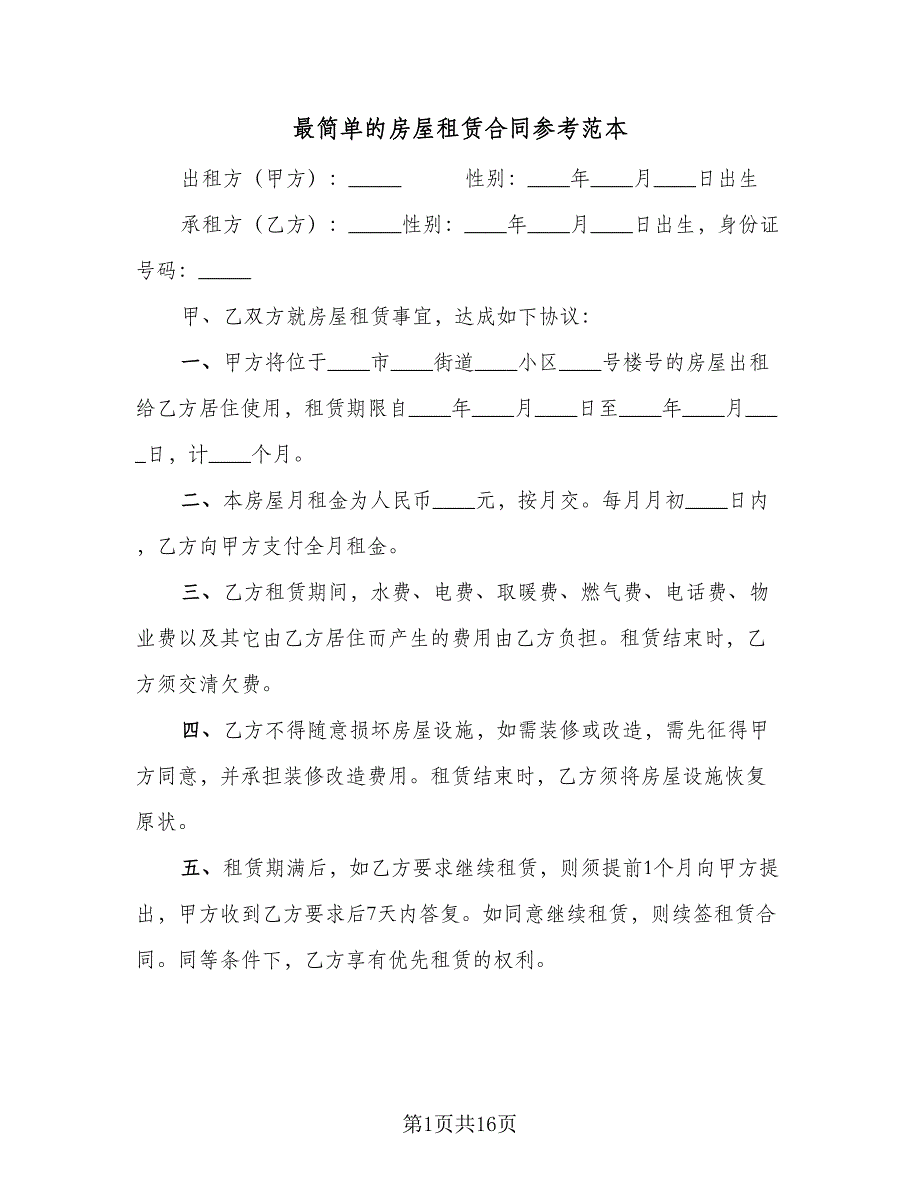 最简单的房屋租赁合同参考范本
出租方（甲方）：_____ 性别：____年____月____日出生
承租方（乙方）：_____性别：____年____月____日出生，身份证
号码：_____
甲、乙双方就房屋租赁事宜，达成如下协议：
一、甲方将位于____市____街道____小区____号楼号的房屋出租
给乙方居住使用，租赁期限自____年____月____日至____年____月___
_日，计____个月。
二、本房屋月租金为人民币____元，按月交。每月月初____日内
，乙方向甲方支付全月租金。
三、乙方租赁期间，水费、电费、取暖费、燃气费、电话费、物
业费以及其它由乙方居住而产生的费用由乙方负担。租赁结束时，乙
方须交清欠费。
四、乙方不得随意损坏房屋设施，如需装修或改造，需先征得甲
方同意，并承担装修改造费用。租赁结束时，乙方须将房屋设施恢复
原状。
五、租赁期满后，如乙方要求继续租赁，则须提前1个月向甲方提
出，甲方收到乙方要求后7天内答复。如同意继续租赁，则续签租赁合
同。同等条件下，乙方享有优先租赁的权利。
第1页共16页